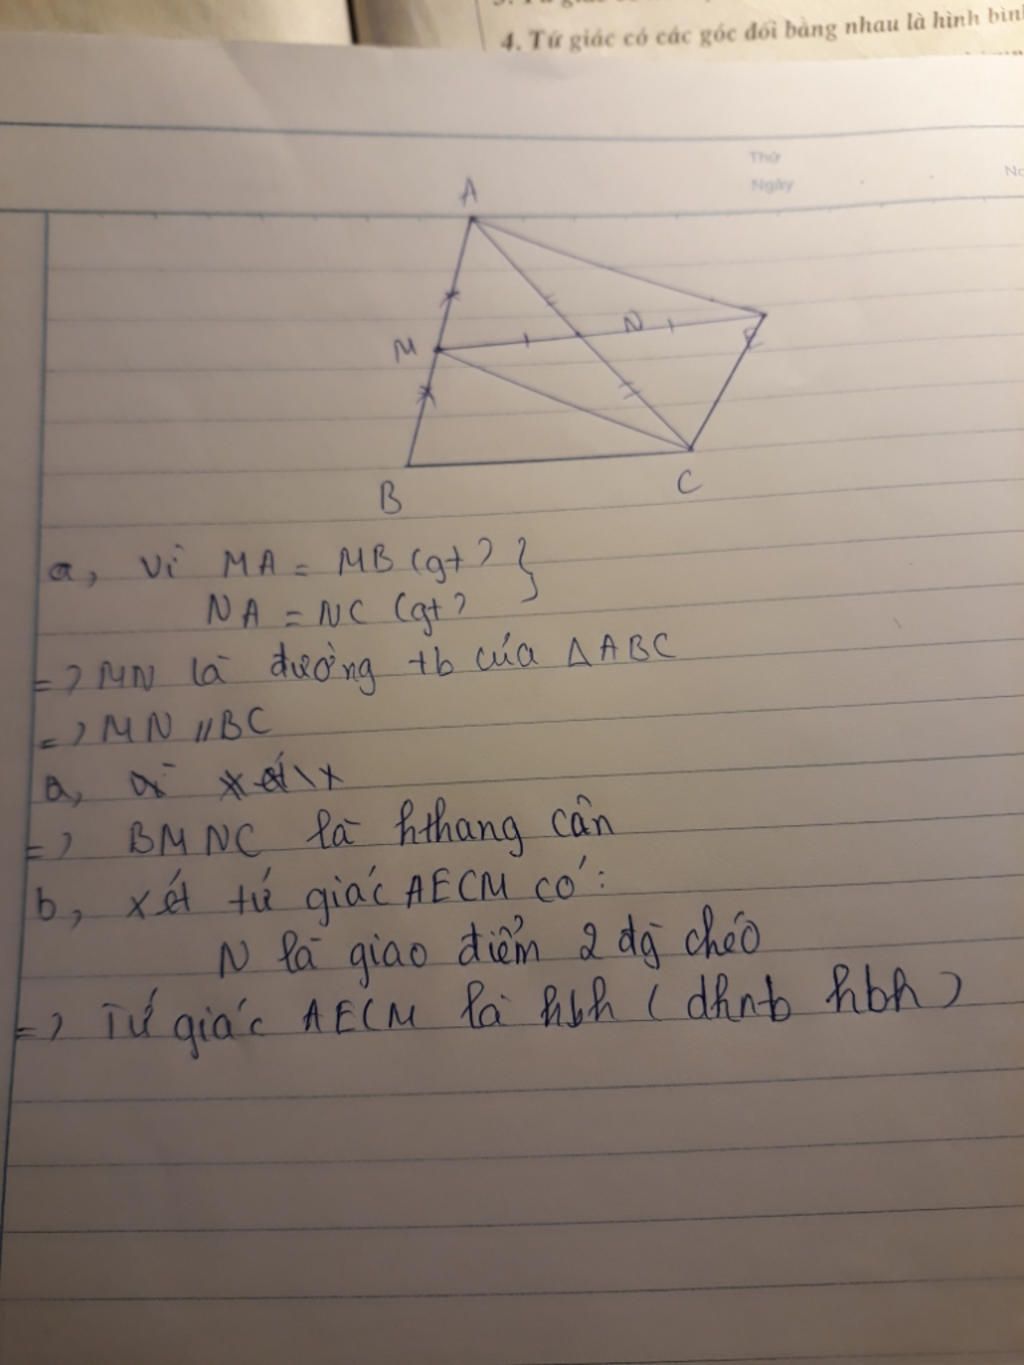 4. Tứ giác có các góc đối bằng nhau là hình bìn
Thứ
Ngày
No
A
M
N
E
B
C
a, Vì MA = MB (gt) }
NA = NC (gt)
=> MN là đường tb của △ABC
=> MN // BC
a,
=> BMNC là hthang cân
b, xét tứ giác AECM có:
N là giao điểm 2 đg chéo
=> Tứ giác AECM là hbh (dhnb hbh)